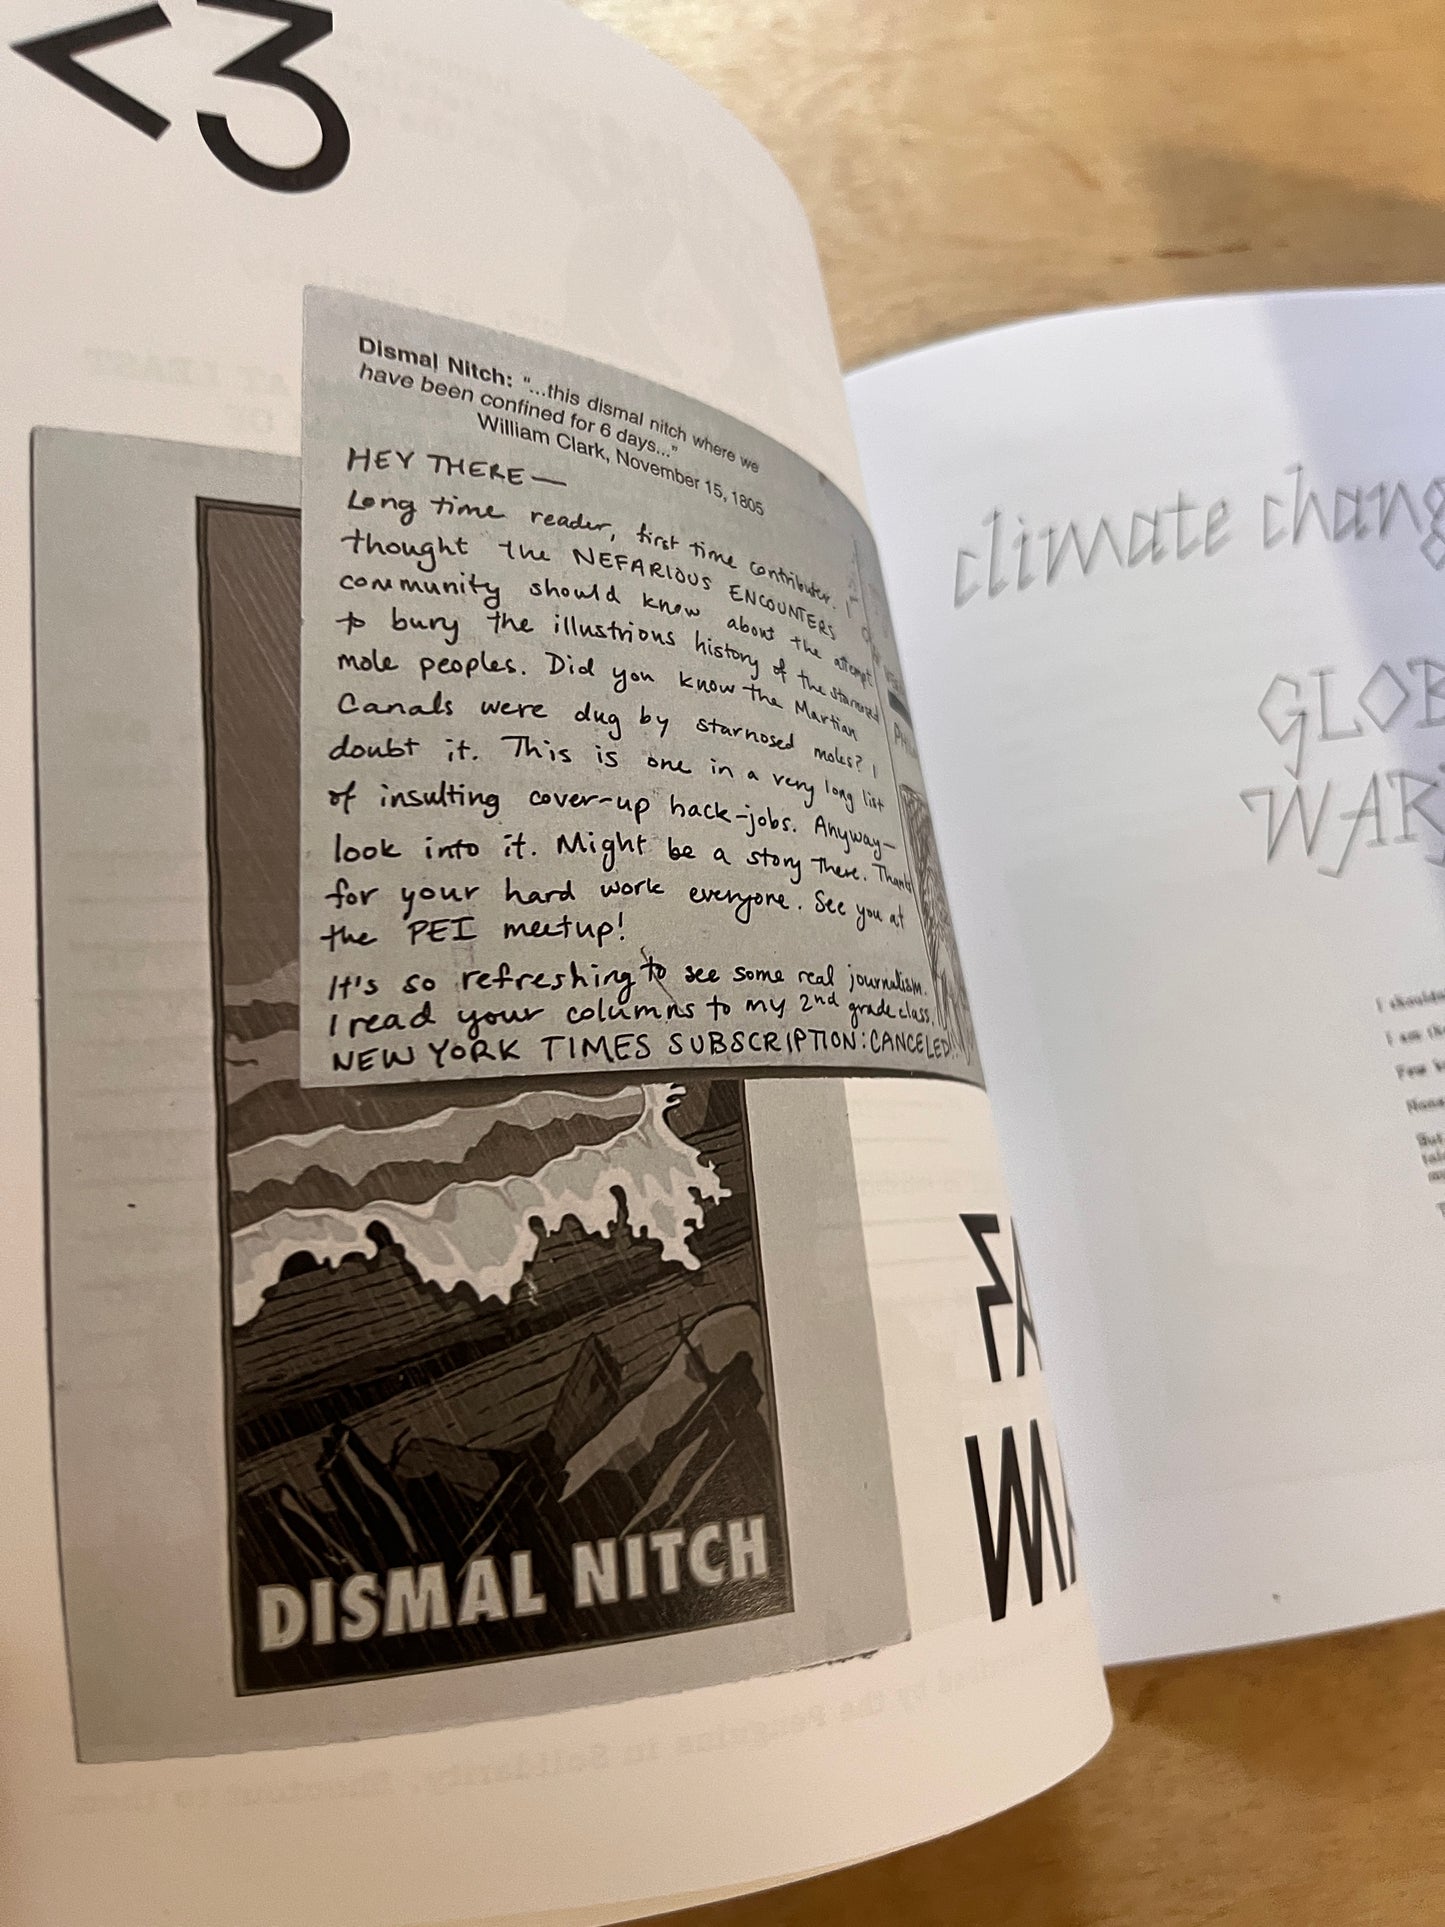 <3
Dismal Nitch: "...this dismal nitch where we
have been confined for 6 days..."
William Clark, November 15, 1805
HEY THERE—
Long time reader, first time contributer. I
thought the NEFARIOUS ENCOUNTERS
community should know about the attempt
to bury the illustrious history of the starnosed
mole peoples. Did you know the Martian
Canals were dug by starnosed moles? I
doubt it. This is one in a very long list
of insulting cover-up hack-jobs. Anyway—
look into it. Might be a story there. Thanks
for your hard work everyone. See you at
the PEI meetup!
It's so refreshing to see some real journalism.
I read your columns to my 2nd grade class.
NEW YORK TIMES SUBSCRIPTION: CANCELED!
DISMAL NITCH
FA
MA
climate chang
GLOB
WAR
I should
I am th
Few
But